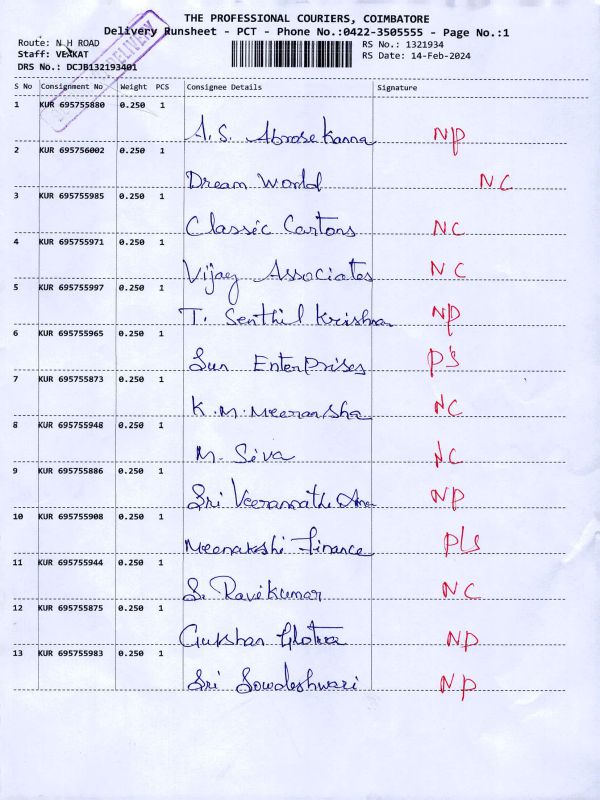 THE PROFESSIONAL COURIERS, COIMBATORE
Delivery Runsheet - PCT - Phone No.:0422-3505555 - Page No.:1
Route: N H ROAD
RS No.: 1321934
Staff: VENKAT
RS Date: 14-Feb-2024
DRS No.: DCJB132193401
DELIVERY
S No Consignment No Weight PCS Consignee Details Signature
1 KUR 695755880 0.250 1
A. S. Abrose Kanna NP
2 KUR 695756002 0.250 1
Dream World NC
3 KUR 695755985 0.250 1
Classic Cartons NC
4 KUR 695755971 0.250 1
Vijay Associates NC
5 KUR 695755997 0.250 1
T. Senthil Krishnan NP
6 KUR 695755965 0.250 1
Sun Enterprises P's
7 KUR 695755873 0.250 1
K. M. Meeransha NC
8 KUR 695755948 0.250 1
M. Siva NC
9 KUR 695755886 0.250 1
Sri NP
10 KUR 695755908 0.250 1
Meenakshi Finance P's
11 KUR 695755944 0.250 1
S. Ravikumar NC
12 KUR 695755875 0.250 1
NP
13 KUR 695755983 0.250 1
Sri Sowdeshwari NP